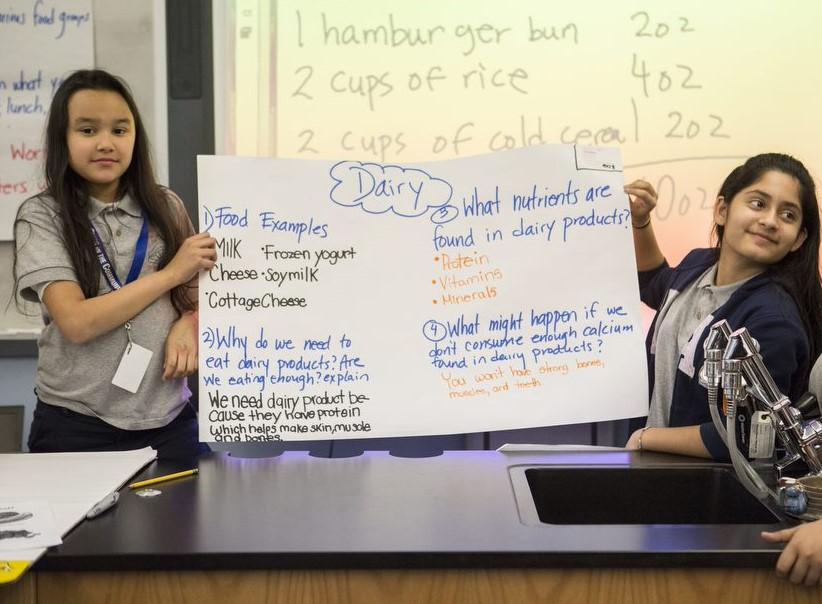 food groups
what
lunch,
1 hamburger bun 2oz
2 cups of rice 4oz
2 cups of cold cereal 2oz
Dairy
1) Food Examples
Milk •Frozen yogurt
Cheese •Soymilk
•Cottage Cheese
2) Why do we need to
eat dairy products? Are
we eating enough? explain
We need dairy product be-
cause they have protein
which helps make skin, muscle
and bones.
3 What nutrients are
found in dairy products?
•Protein
•Vitamins
•Minerals
4 What might happen if we
don't consume enough calcium
found in dairy products?
You won't have strong bones,
muscles, and teeth